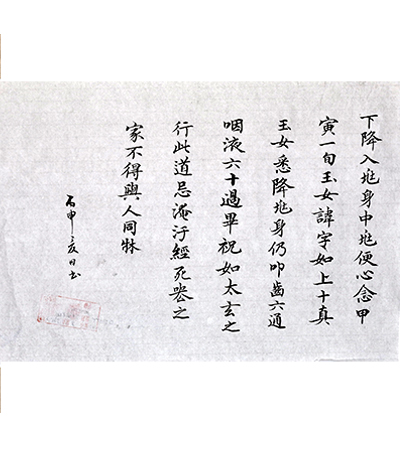 下降入兆身中兆便心念甲
寅一旬玉女諱字如上十真
玉女悉降兆身仍叩齒六通
咽液六十過畢祝如太玄之
行此道忌淹汙經死喪之
家不得與人同牀
丙申亥日书